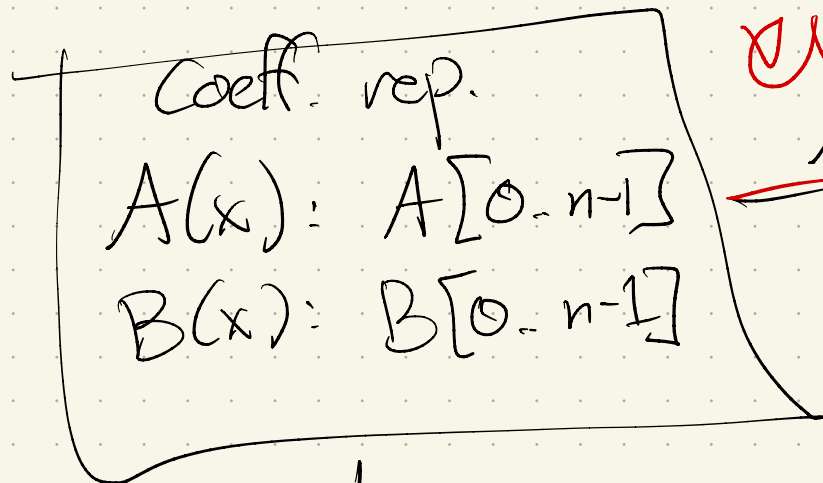 Coeff. rep.
A(x): A[0.. n-1]
B(x): B[0.. n-1]